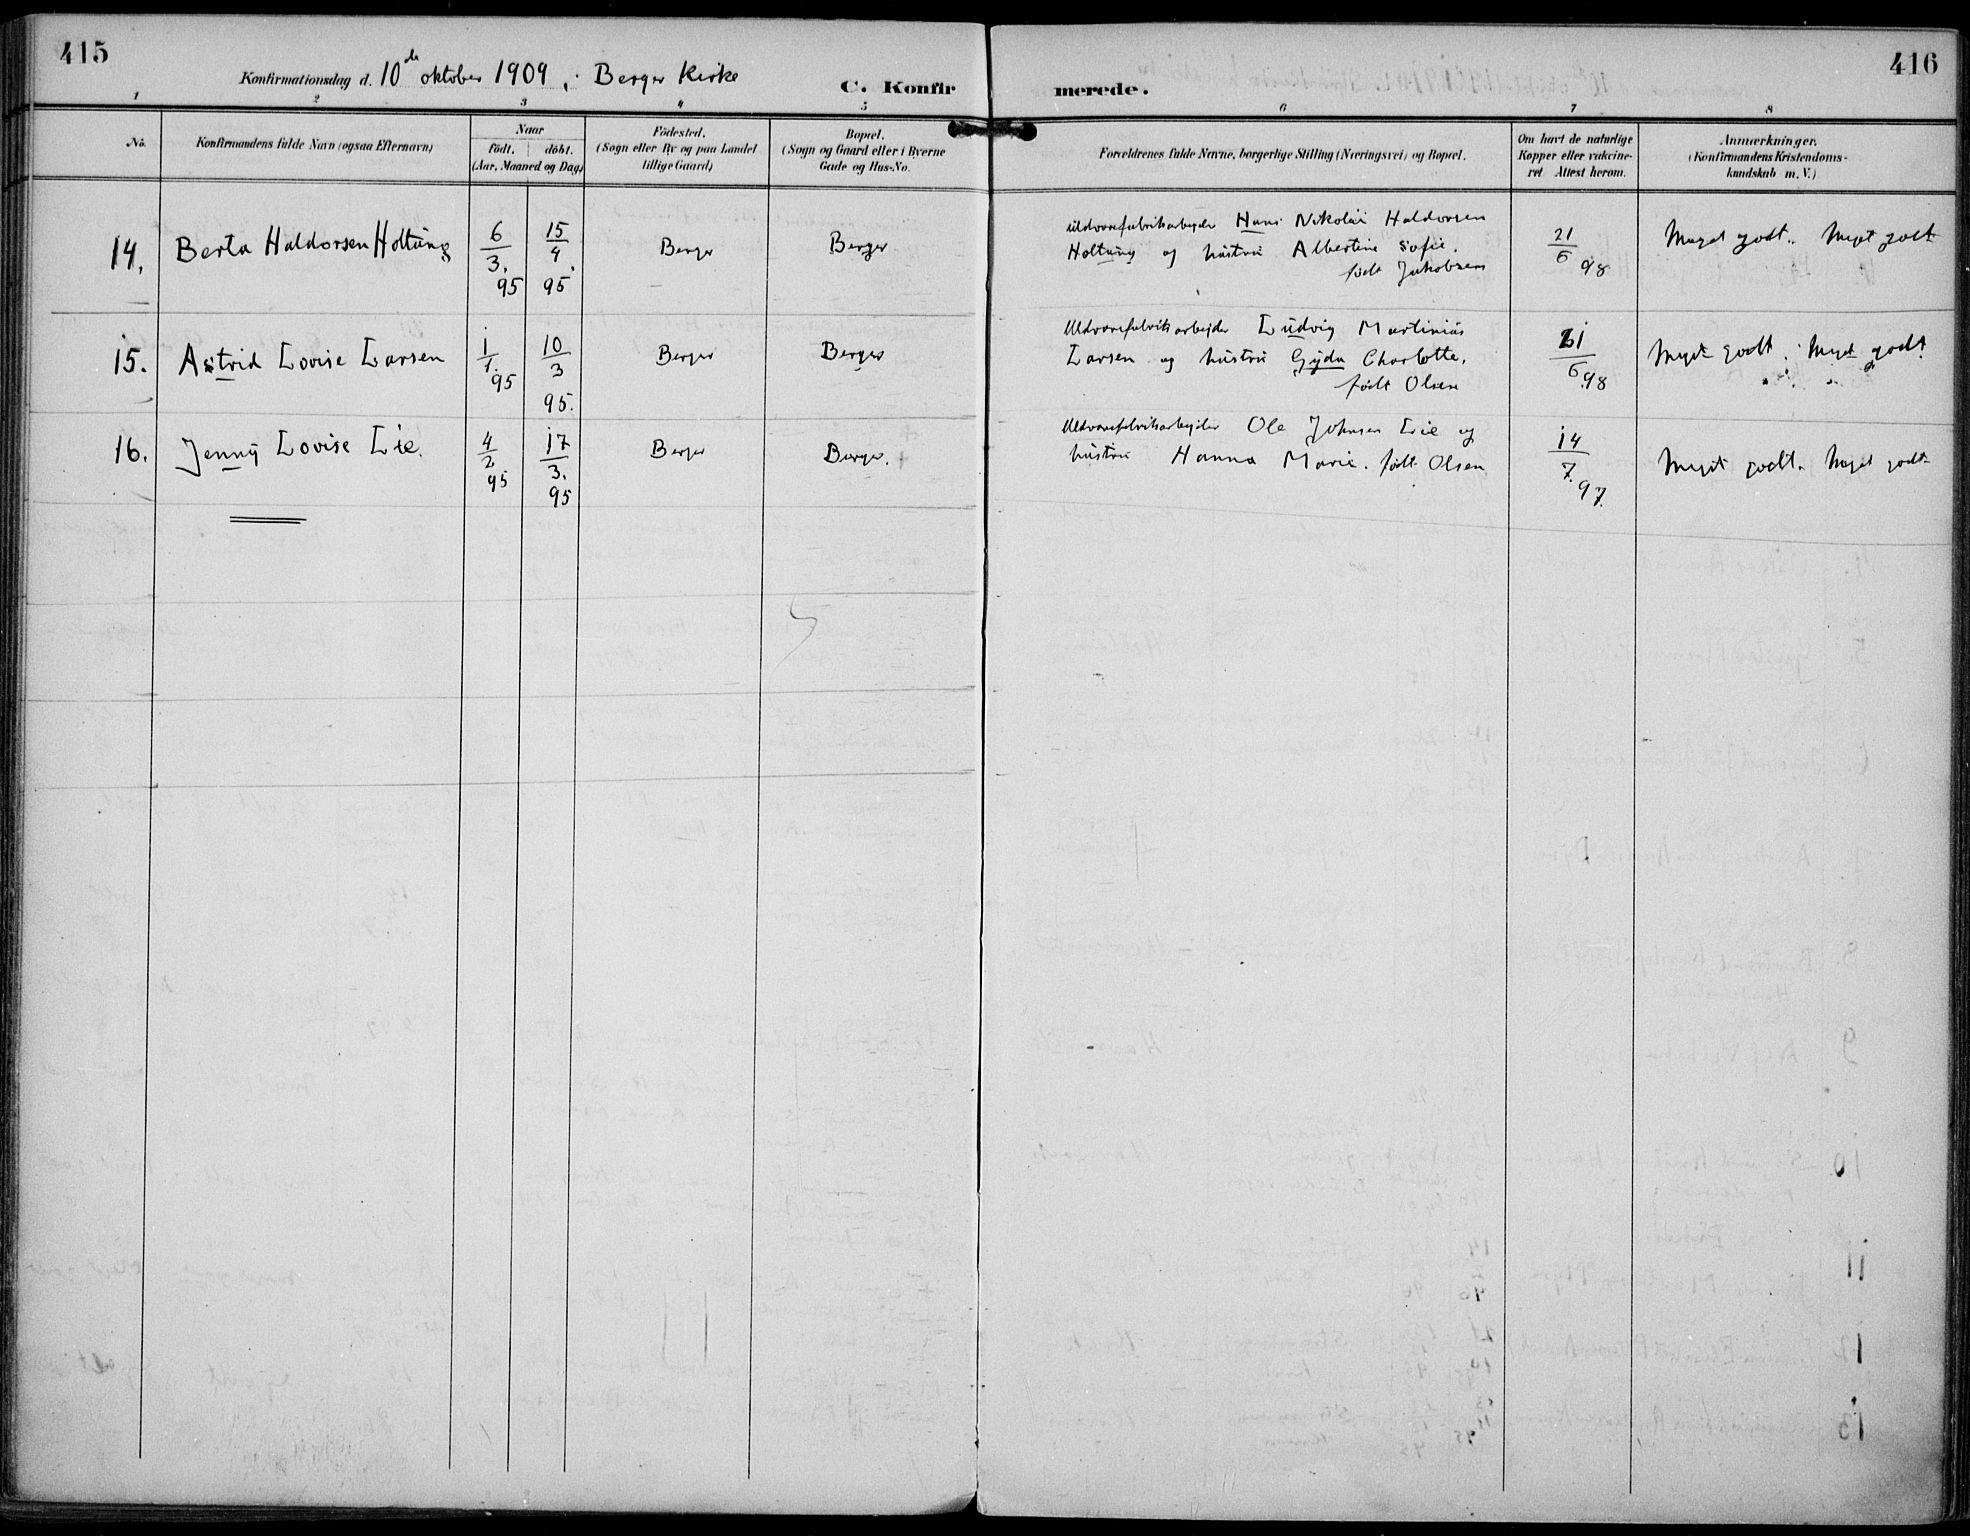 415
416
Konfirmationsdag d. 10de oktober 1909, i Berger Kirke
C. Konfirmerede.
1 2 3 4 5 6 7 8
No.
Konfirmandens fulde Navn (ogsaa Efternavn)
Naar
födt. döbt.
(Aar, Maaned og Dag)
Födested.
(Sogn eller By og paa Landet
tillige Gaard)
Bopæl.
(Sogn og Gaard eller i Byerne
Gade og Hus-No.
Forældrenes fulde Navne, borgerlige Stilling (Næringsvei) og Bopæl.
Om havt de naturlige
Kopper eller vakcine-
ret Attest herom.
Anmærkninger.
(Konfirmandens Kristendoms-
kundskab m. V.)
14. Berta Haldorsen Holtung 6/3. 95 15/4. 95 Berger Berger
uldvarefabrikarbejder Hans Nikolai Haldorsen
Holtung og hustru Albertine Sofie.
født Jakobsen
21/6 98 Meget godt. Meget godt
15. Astrid Lovise Larsen 1/1. 95 10/3 95. Berger Berger
Uldvarefabrikarbejder Ludvig Martinius
Larsen og hustru Gyda Charlotte,
født Olsen
21/6 98 Meget godt. Meget godt.
16. Jenny Lovise Lie. 4/2 95 17/3. 95 Berger Berger.
Uldvarefabrikarbejder Ole Johnsen Lie og
hustru Hanna Marie. født Olsen
14/7. 97. Meget godt. Meget godt